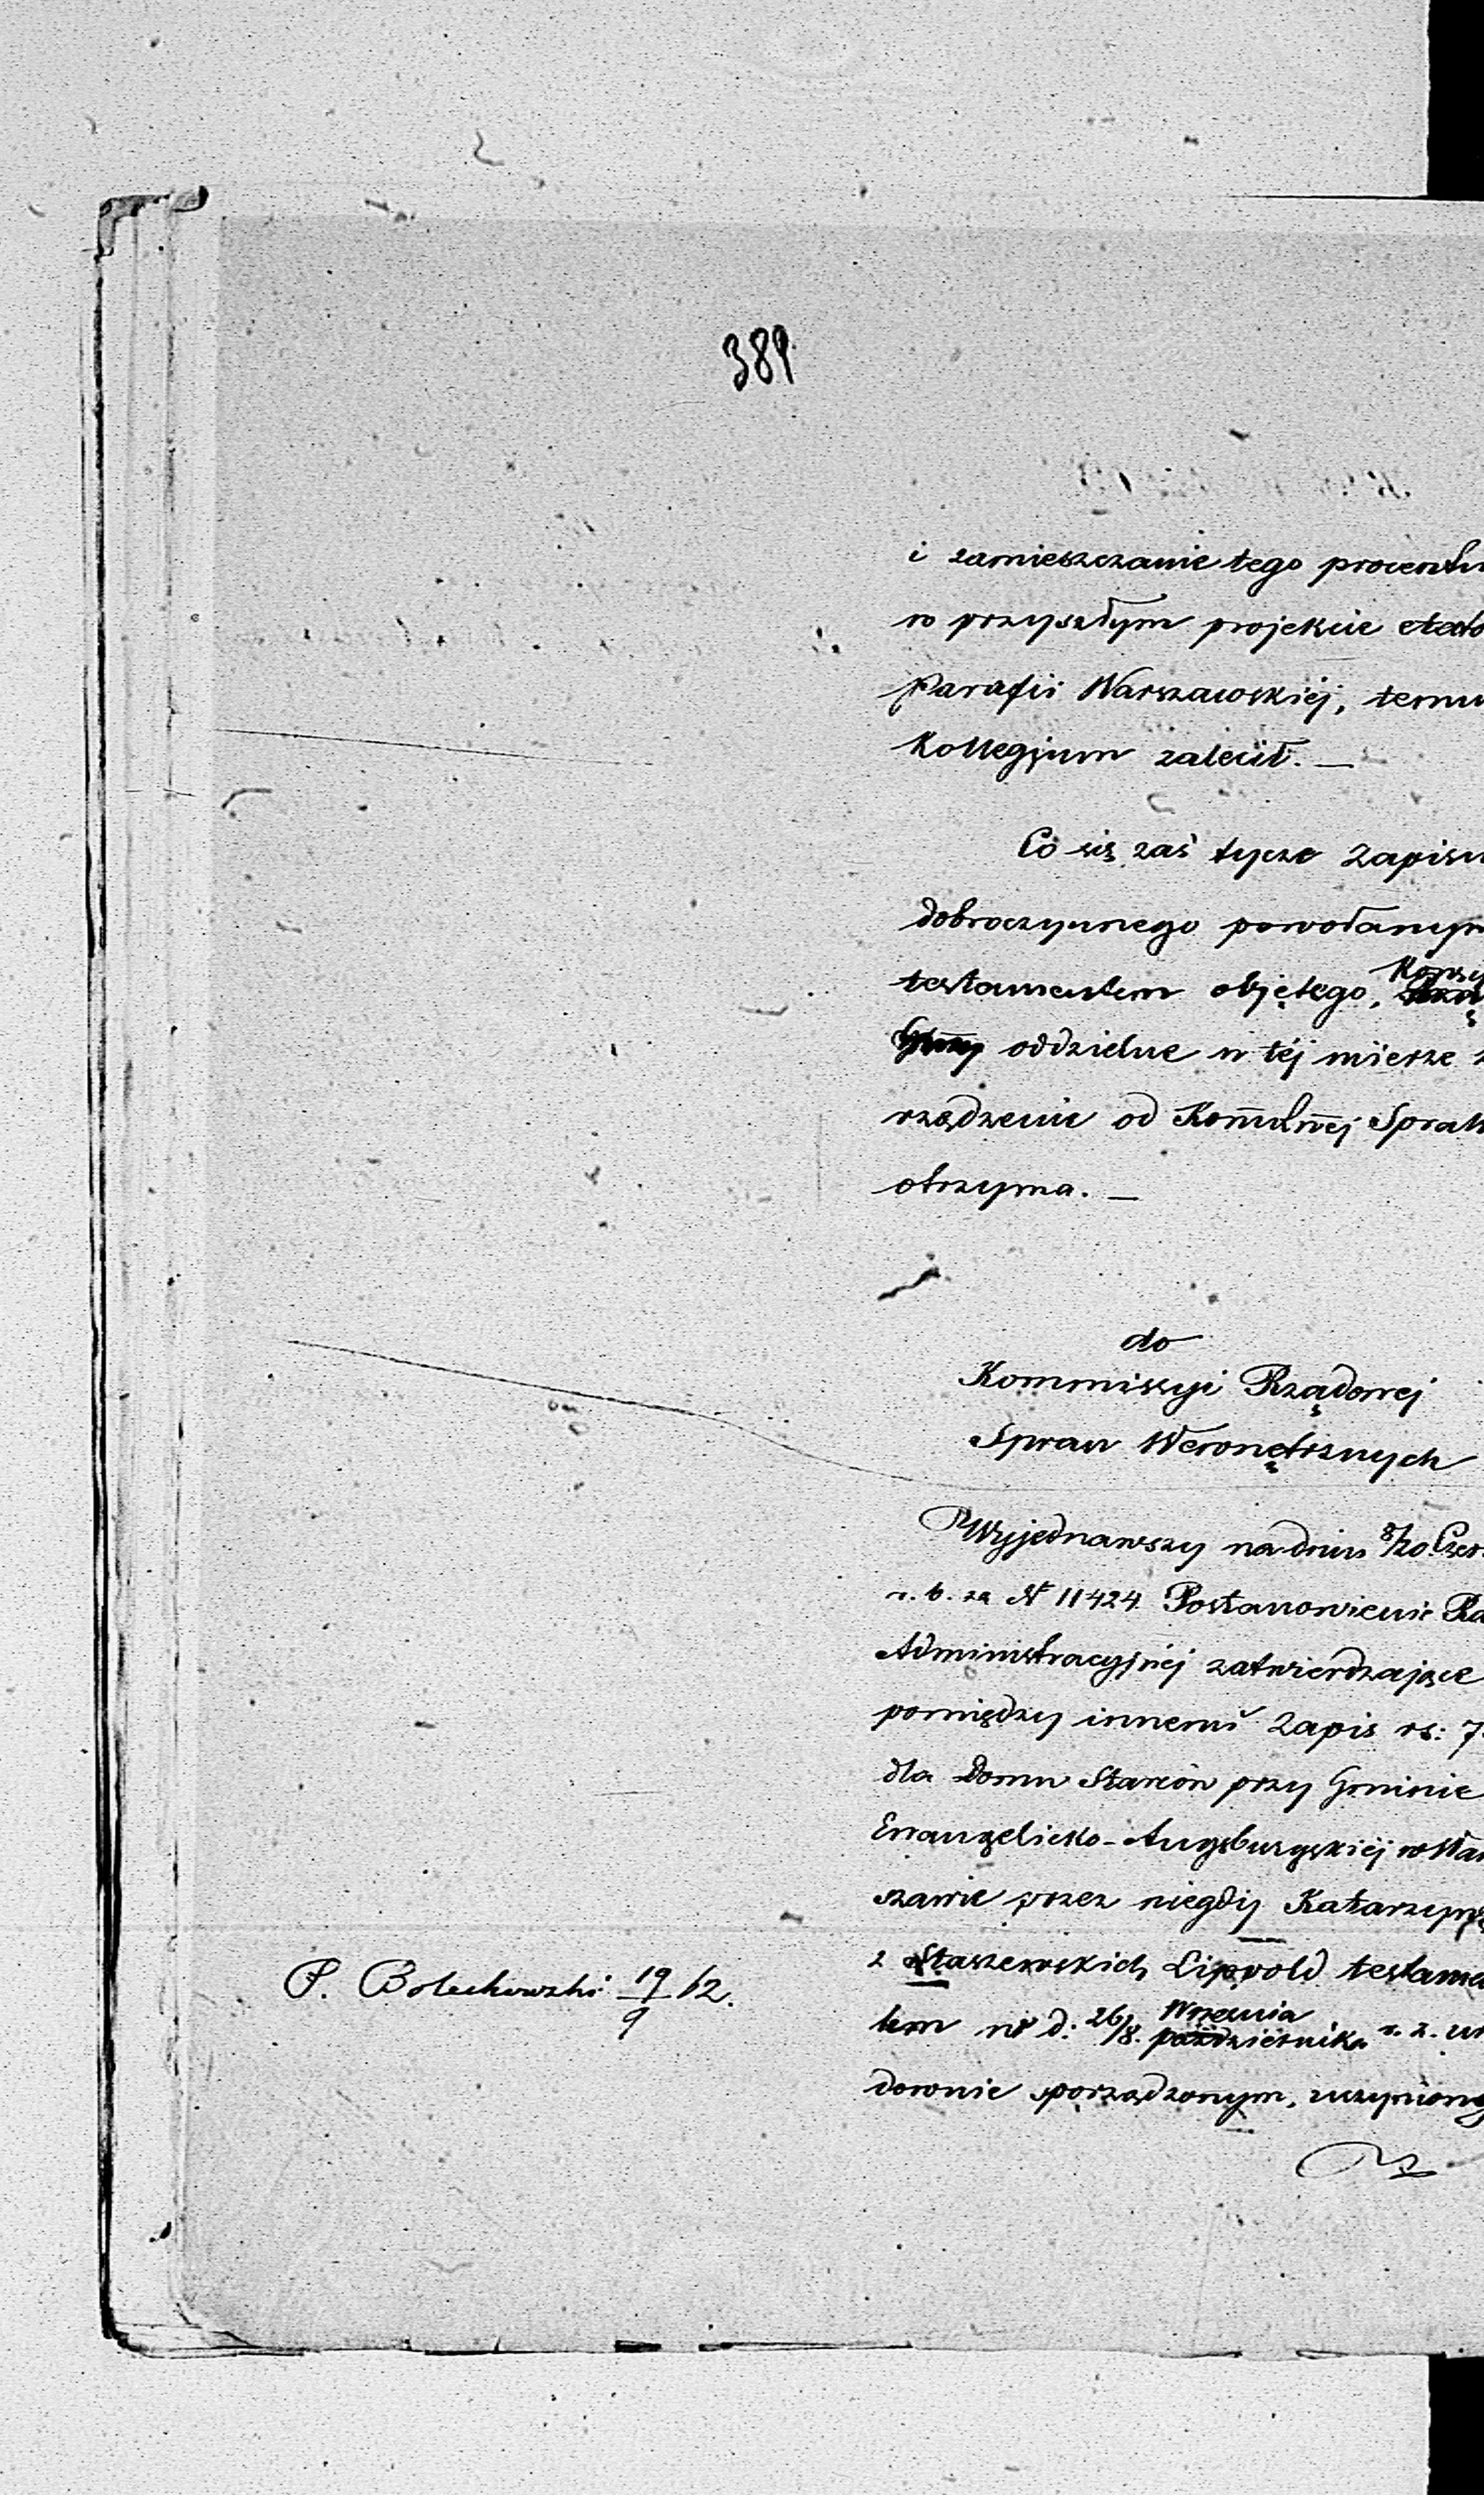 389
i zamieszczanie tego procentu
w przyszłym projekcie etato
Parafii Warszawskiéj, temu
Kollegjum zalecił. —
Co się zaś tycze Zapisu
dobroczynnego powołanym
testamentem objętego,
oddzielne w téj mierze
rządzenie od Spraw
otrzyma. —
do
Kommissyi Rządowej
Spraw Wewnętrznych
Wyjednawszy na dniu 8/20 Czer
r. b. za N 11424 Postanowienie Ra
Administracyjnéj zatwierdzające
pomiędzy innemi Zapis rs: 7
dla Domu Starców przy Gminie
Ewangelicko-Augsburgskiéj w War
szawie przez niegdy Katarzynę
z Staszewskich Lippold testamen
tem w d: 26/8. Września
października r. z. u
downie sporządzonym, uczyniony
P. Bolechowski 19/9 62.